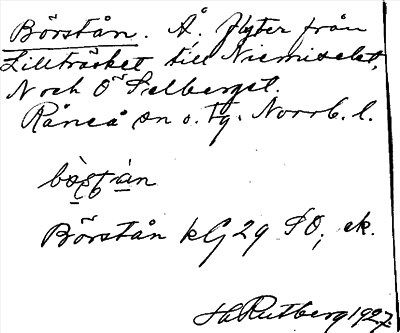 Börstån. Å. flyter från
Lillträsket till Niemiselet,
N och Ö Selberget.
Råneå sn o. tg. Norrb. l.
Börstån kG 29 SO; ek.
H Rutberg 1927.